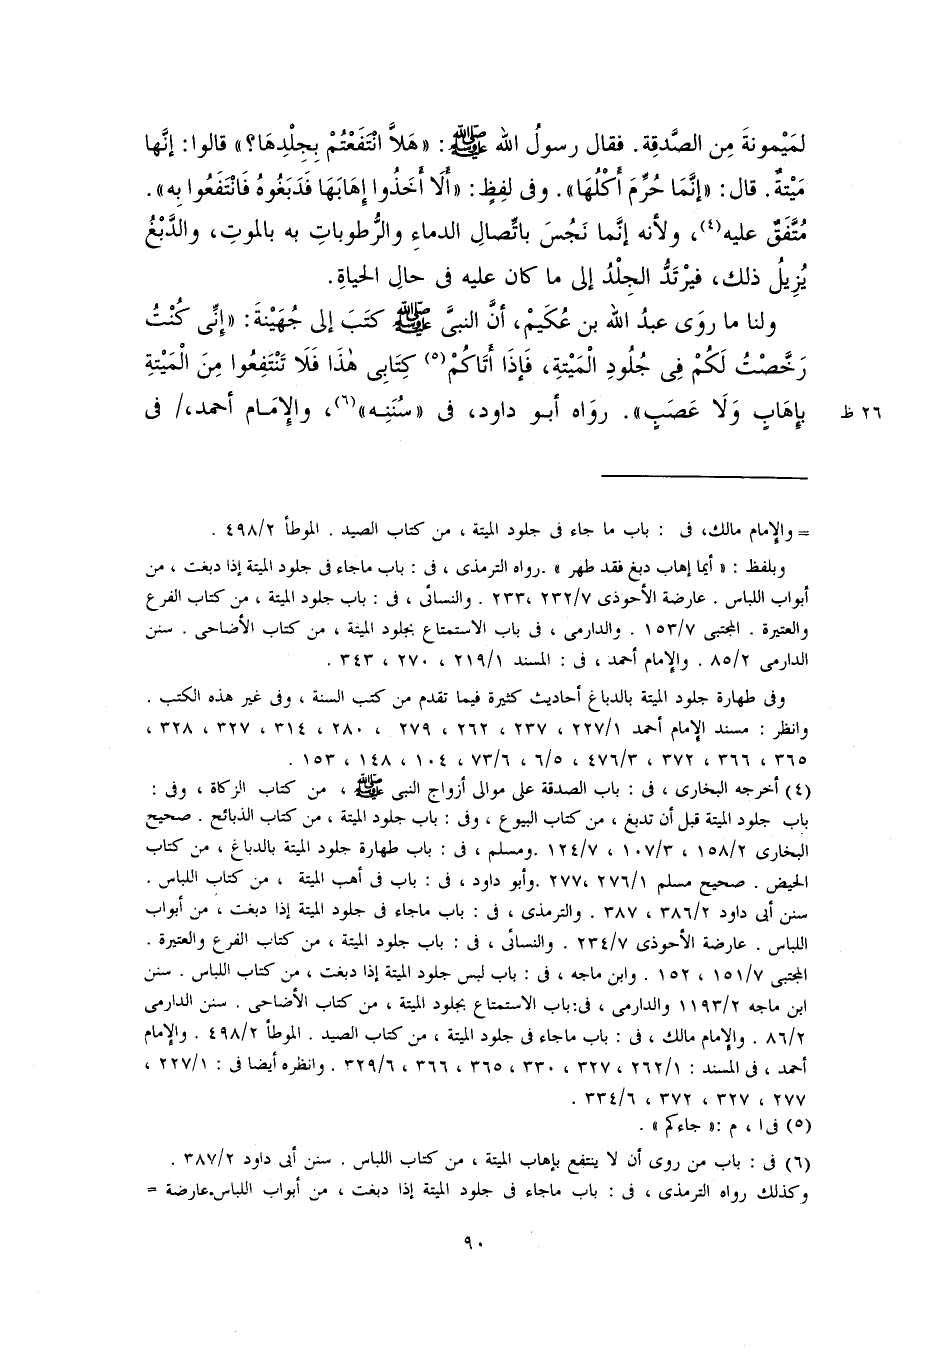 لمَيْمونةَ مِن الصَّدقِة. فقال رسولُ الله ﷺ: «هَلاَّ انْتَفَعْتُمْ بِجِلْدِهَا؟» قالوا: إنَّها
مَيْتةٌ. قال: «إنَّمَا حُرِّمَ أَكْلُهَا». وفى لفِظٍ: «أَلَا أَخَذُوا إِهَابَهَا فَدَبَغُوهُ فَانْتَفَعُوا بِه».
مُتَّفَقٌ عليه(٤)، ولأنه إنَّما نَجُسَ باتِّصالِ الدماءِ والرُّطوباتِ به بالموتِ، والدَّبْغُ
يُزِيلُ ذلك، فيرْتَدُّ الجلْدُ إلى ما كان عليه فى حالِ الحياةِ.
ولنا ما روَى عبدُ الله بن عُكَيمْ، أنَّ النبىَّ ﷺ كتَبَ إلى جُهَيْنةَ: «إِنِّى كُنْتُ
رَخَّصْتُ لَكُمْ فِى جُلُودِ الْمَيْتةِ، فَإذَا أَتَاكُمْ(٥) كِتَابِى هٰذَا فَلَا تَنْتَفِعُوا مِنَ الْمَيْتةِ
بِإِهَابٍ وَلَا عَصَبٍ». روَاه أبو داود، فى «سُنَنِه»(٦)، والإمَام أحمد،/ فى ٢٦ ظ
= والإمام مالك، فى : باب ما جاء فى جلود الميتة ، من كتاب الصيد . الموطأ ٤٩٨/٢ .
وبلفظ : « أيما إهاب دبغ فقد طهر » .رواه الترمذى ، فى : باب ماجاء فى جلود الميتة إذا دبغت ، من
أبواب اللباس . عارضة الأحوذى ٢٣٢/٧ ،٢٣٣ . والنسائى ، فى : باب جلود الميتة ، من كتاب الفرع
والعتيرة . المجتبى ١٥٣/٧ . والدارمى ، فى باب الاستمتاع بجلود الميتة ، من كتاب الأضاحى . سنن
الدارمى ٨٥/٢ . والإمام أحمد ، فى : المسند ٢١٩/١ ، ٢٧٠ ، ٣٤٣ .
وفى طهارة جلود الميتة بالدباغ أحاديث كثيرة فيما تقدم من كتب السنة ، وفى غير هذه الكتب .
وانظر : مسند الإمام أحمد ٢٢٧/١ ، ٢٣٧ ، ٢٦٢ ، ٢٧٩ ، ٢٨٠ ، ٣١٤ ، ٣٢٧ ، ٣٢٨ ،
٣٦٥ ، ٣٦٦ ، ٣٧٢ ، ٤٧٦/٣ ، ٦/٥ ، ٧٣/٦ ، ١٠٤ ، ١٤٨ ، ١٥٣ .
(٤) أخرجه البخارى ، فى : باب الصدقة على موالى أزواج النبى ﷺ ، من كتاب الزكاة ، وفى :
باب جلود الميتة قبل أن تدبغ ، من كتاب البيوع ، وفى : باب جلود الميتة ، من كتاب الذبائح . صحيح
البخارى ١٥٨/٢ ، ١٠٧/٣ ، ١٢٤/٧ .ومسلم ، فى : باب طهارة جلود الميتة بالدباغ ، من كتاب
الحيض . صحيح مسلم ٢٧٦/١ ،٢٧٧ .وأبو داود ، فى : باب فى أهب الميتة ، من كتاب اللباس .
سنن أبى داود ٣٨٦/٢ ، ٣٨٧ . والترمذى ، فى : باب ماجاء فى جلود الميتة إذا دبغت ، من أبواب
اللباس . عارضة الأحوذى ٢٣٤/٧ . والنسائى ، فى : باب جلود الميتة ، من كتاب الفرع والعتيرة .
المجتبى ١٥١/٧ ، ١٥٢ . وابن ماجه ، فى : باب لبس جلود الميتة إذا دبغت ، من كتاب اللباس . سنن
ابن ماجه ١١٩٣/٢ والدارمى ، فى:باب الاستمتاع بجلود الميتة ، من كتاب الأضاحى . سنن الدارمى
٨٦/٢ . والإمام مالك ، فى : باب ماجاء فى جلود الميتة ، من كتاب الصيد . الموطأ ٤٩٨/٢ . والإمام
أحمد ، فى المسند : ٢٦٢/١ ، ٣٢٧ ، ٣٣٠ ، ٣٦٥ ، ٣٦٦ ، ٣٢٩/٦ . وانظره أيضا فى : ٢٢٧/١ ،
٢٧٧ ، ٣٢٧ ، ٣٧٢ ، ٣٣٤/٦ .
(٥) فى ا ، م :« جاءكم » .
(٦) فى : باب من روى أن لا ينتفع بإهاب الميتة ، من كتاب اللباس . سنن أبى داود ٣٨٧/٢ .
وكذلك رواه الترمذى ، فى : باب ماجاء فى جلود الميتة إذا دبغت ، من أبواب اللباس.عارضة =
٩٠